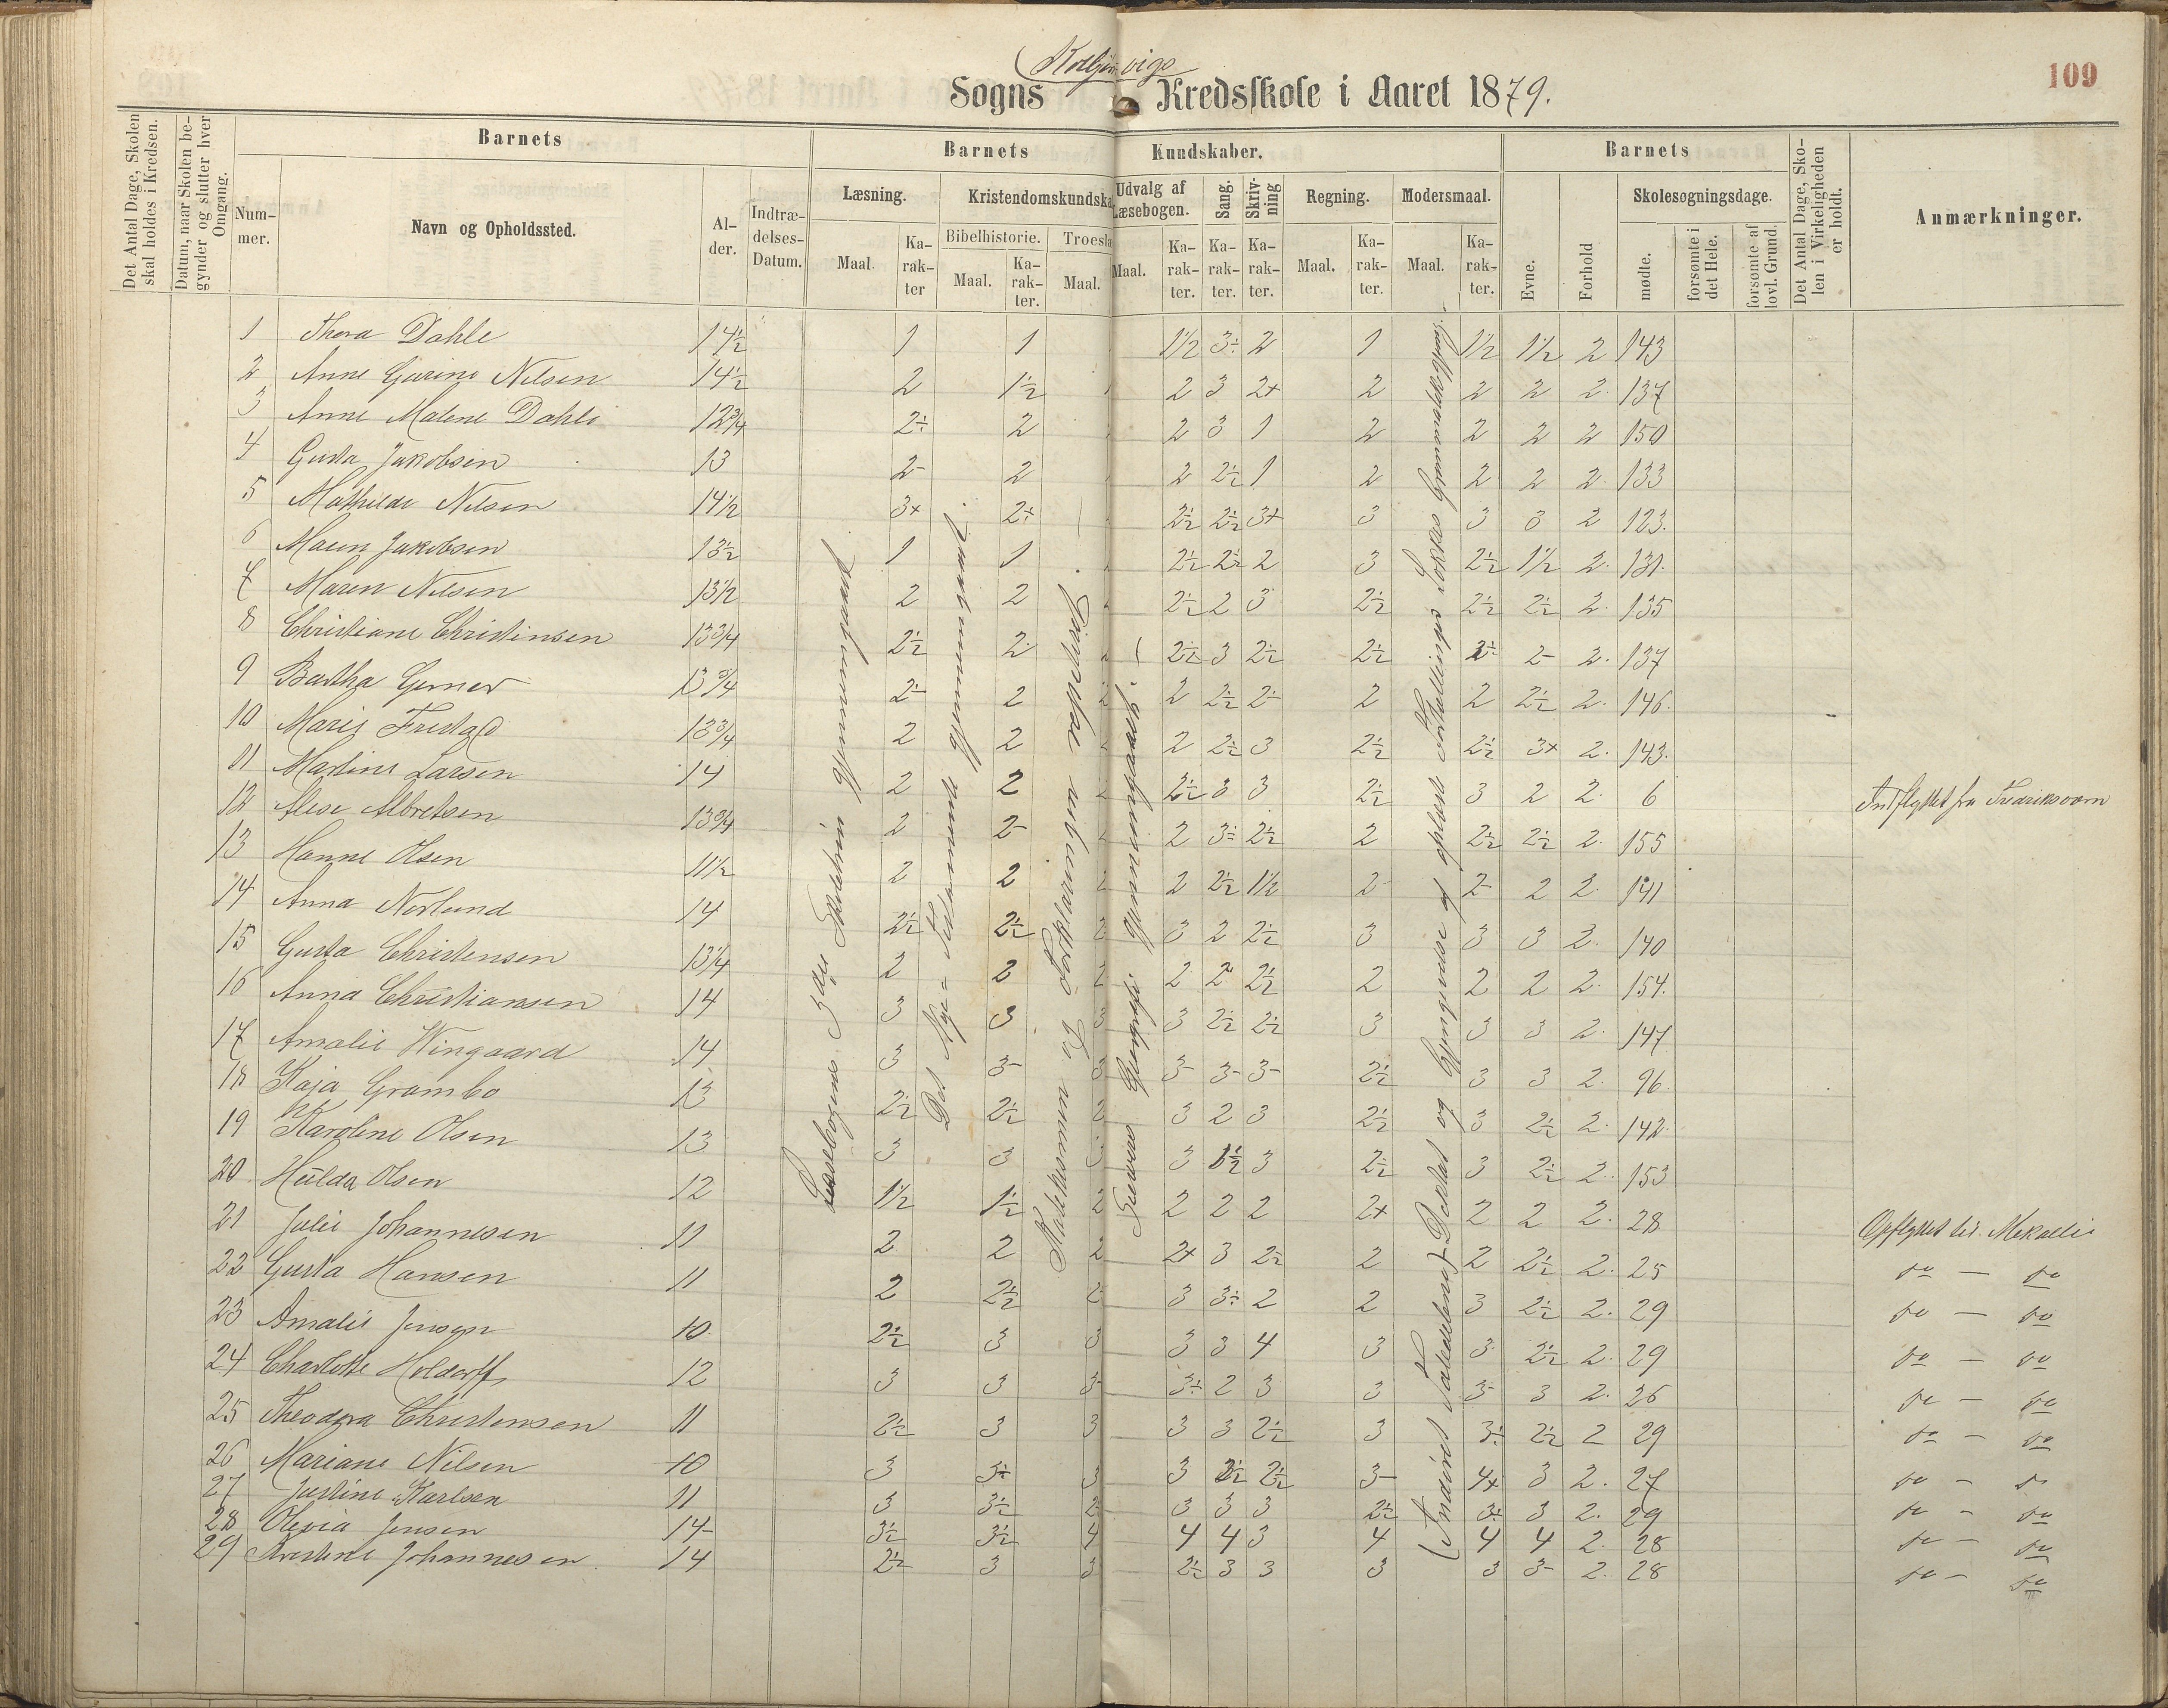 109
Kolbjørnvigs
Sogns Kredsskole i Aaret 1879.
Det Antal Dage, Skolen skal holdes i Kredsen.
Datum, naar Skolen begynder og slutter hver Omgang.
Barnets
Nummer.
Navn og Opholdssted.
Alder.
Indtrædelses-Datum.
Barnets Kundskaber.
Læsning.
Maal.
Karakter
Kristendomskundska
Bibelhistorie.
Maal.
Karakter.
Troesl
Maal.
Udvalg af Læsebogen.
Maal.
Karakter.
Sang.
Karakter.
Skrivning
Karakter.
Regning.
Maal.
Karakter.
Modersmaal.
Maal.
Karakter.
Barnets
Evne.
Forhold
Skolesøgningsdage.
mødte.
forsømte i det Hele.
forsømte af lovl. Grund.
Det Antal Dage, Skolen i Virkeligheden er holdt.
Anmærkninger.
1 Thora Dahle 14½ 1 1 1½ 3÷ 2 1 1½ 1½ 2 143
2 Anne Gurine Nilsen 14½ 2 1½ 2 3 2+ 2 2 2 2. 137
3 Anne Malene Dahle 12¾ 2÷ 2 2 3 1 2 2 2 2 150
4 Gusta Jakobsen 13 2- 2 2 2½ 1 2 2 2 2. 133
5 Mathilde Nilsen 14½ 3+ 2÷ 2½ 2½ 3+ 3 3 3 2 123.
6 Maren Jakobsen 13½ 1 1 2½ 2½ 2 3 2½ 1½ 2. 131.
7 Maren Nilsen 13½ 2 2 2½ 2 3 2½ 2½ 2½ 2. 135
8 Christiane Christinsen 13¾ 2½ 2 2½ 3 2½ 2½ 2÷ 2- 2. 137
9 Bertha Gerner 13¾ 2- 2 2 2½ 2- 2 2 2½ 2. 146.
10 Marie Frestad 13¾ 2 2 2 2½ 3 2½ 2½ 3+ 2. 143.
11 Martine Larsen 14 2 2 2½ 3 3 2½ 3 2 2. 6 Indflyttet fra Fredriksværn
12 Alise Albretsen 13¾ 2 2- 2 3÷ 2½ 2 2½ 2½ 2. 155
13 Hanne Olsen 11½ 2 2 2 2½ 1½ 2- 2- 2 2. 141
14 Anna Norlund 14 2½ 2½ 3 2 2½ 3 3 3 2. 140
15 Gusta Christensen 13¼ 2 2 2 2 2 2½ 2 2 2 2. 154.
16 Anna Christiansen 14 3 3 3 3 2½ 2½ 3 3 3 2. 147
17 Amalie Wingaard 14 3 3- 3 3- 3- 3- 2½ 3 3 2. 96.
18 Kaja Grambo 13 2½ 2½ 2 3 2 3 2½ 3 2½ 2. 142.
19 Karoline Olsen 13 3 3 3 3 1½ 3 2½ 3 2½ 2. 153
20 Hulda Olsen 12 1½ 1½ 2 2 2 2 2+ 2 2 2. 28 Opflyttet til Mekaeli
21 Julie Johannesen 11 2 2 2 2+ 3 2½ 2 2 2½ 2. 25 do — do
22 Gusta Hansen 11 2 2½ 2 3 3÷ 2 2 3 2½ 2. 29 do — do
23 Amalie Jensen 10 2½ 3 3 3 3 4 3 3 2½ 2. 29 do — do
24 Charlotte Holdorff 12 3 3 3- 3÷ 2 3 3 3- 3 2. 26 do — do
25 Theodora Christensen 11 2½ 3 3 3 3 2½ 3 3÷ 2½ 2 29 do — do
26 Mariane Nilsen 10 3 3+ 3 3 2½ 2½ 3- 4+ 3 2. 27 do — do
27 Justine Karlsen 11 3 3½ 2 3 3 3 2½ 3÷ 3 2. 29 do — do
28 Olevia Jensen 14 3½ 3½ 4 4 4 3 4 4 4 2. 28 do — do
29 Kristine Johannesen 14 2½ 3 3 2½ 3 3 3 3 3- 2. 28 do — do
Læsebogens 3die Skoletrin gjennemgaaet
Det Nye Testamente gjennemgaaet.
Katekismen og Forklaringen repeteret.
Sverres Geografi gjennemgaaet.
(Indøvet Taledelene) Dektat og Gjengivelse af oplæst Fortællings Stykke Grammatik gjeng.